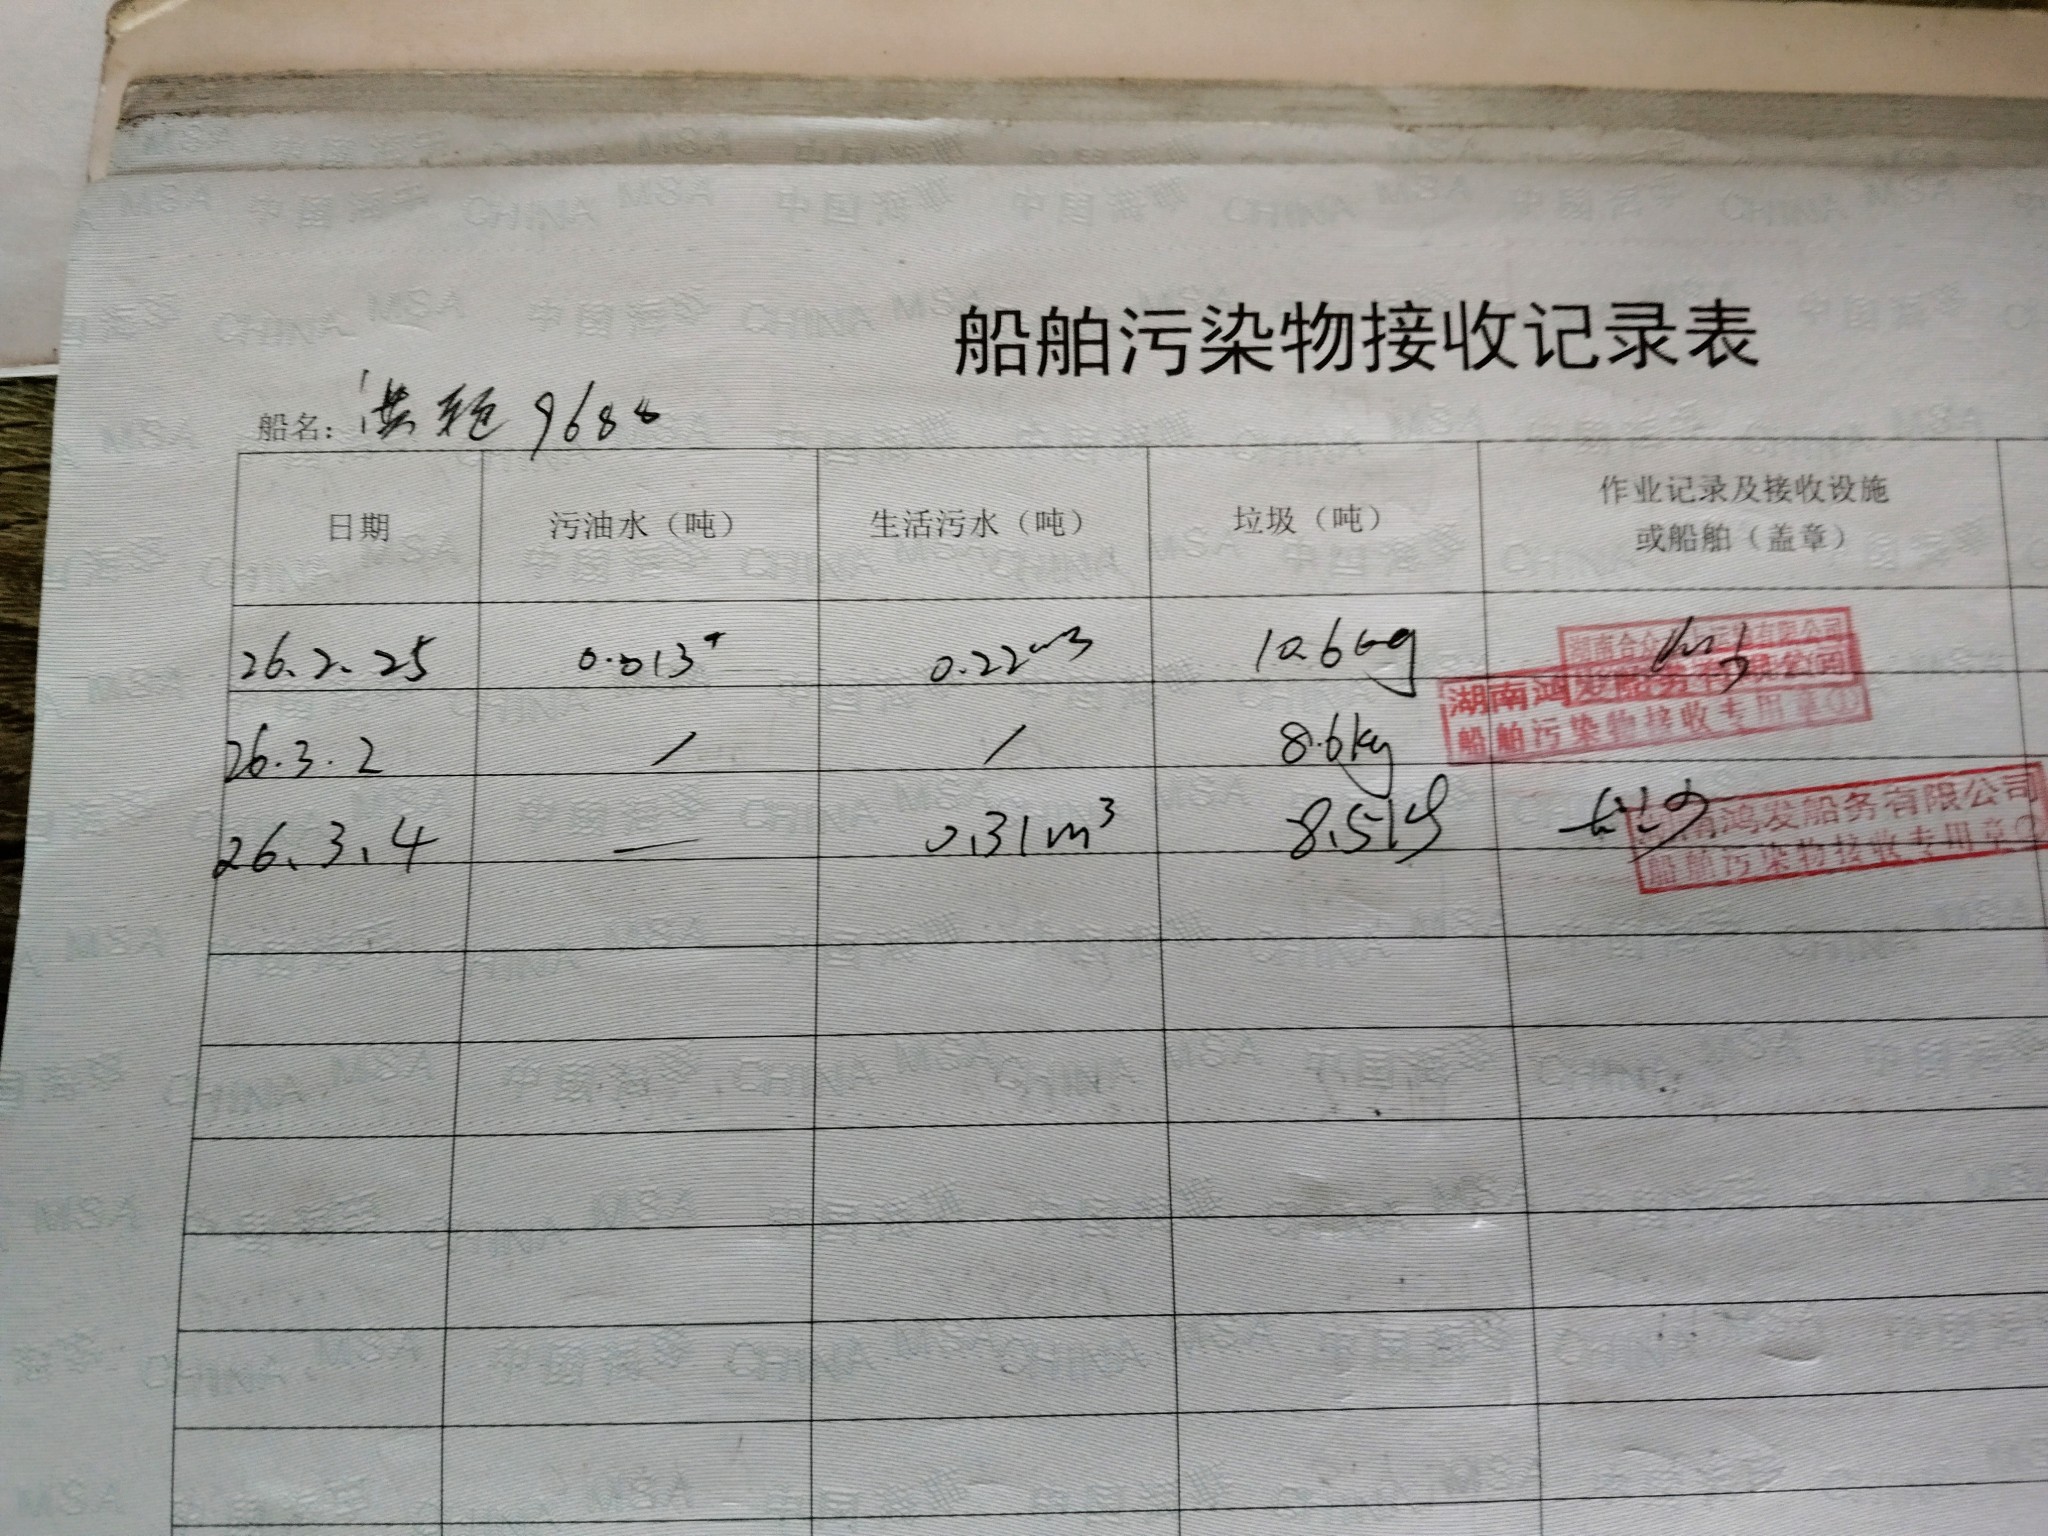 船舶污染物接收记录表
船名: 洪 9688
日期 污油水（吨） 生活污水（吨） 垃圾（吨） 作业记录及接收设施
或船舶（盖章）
26.2.25 0.013 0.22m3 10.6kg
湖南合众 有限公司
湖南鸿发船务有限公司
船舶污染物接收专用章①
26.3.2 / / 8.6kg
26.3.4 — 0.31m³ 8.5kg
南鸿发船务有限公司
船舶污染物接收专用章
中国海事 CHINA MSA